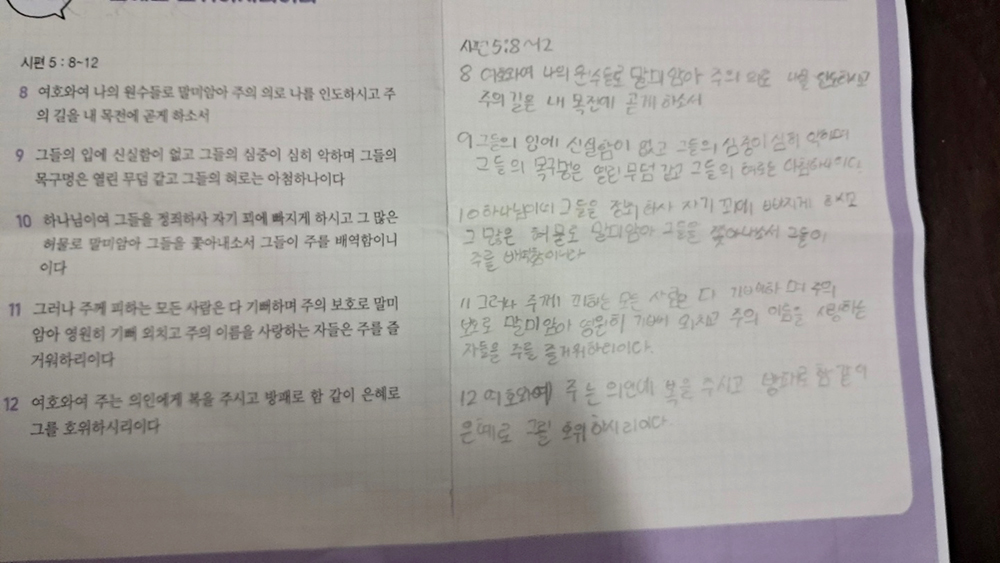 시편 5 : 8~12
8 여호와여 나의 원수들로 말미암아 주의 의로 나를 인도하시고 주
의 길을 내 목전에 곧게 하소서
9 그들의 입에 신실함이 없고 그들의 심중이 심히 악하며 그들의
목구멍은 열린 무덤 같고 그들의 혀로는 아첨하나이다
10 하나님이여 그들을 정죄하사 자기 꾀에 빠지게 하시고 그 많은
허물로 말미암아 그들을 쫓아내소서 그들이 주를 배역함이니
이다
11 그러나 주께 피하는 모든 사람은 다 기뻐하며 주의 보호로 말미
암아 영원히 기뻐 외치고 주의 이름을 사랑하는 자들은 주를 즐
거워하리이다
12 여호와여 주는 의인에게 복을 주시고 방패로 함 같이 은혜로
그를 호위하시리이다
시편 5:8~12
8 여호와여 나의 원수들로 말미암아 주의 의로 나를 인도하시고
주의 길을 내 목전에 곧게 하소서
9 그들의 입에 신실함이 없고 그들의 심중이 심히 악하며
그들의 목구멍은 열린 무덤 같고 그들의 혀로는 아첨하나이다.
10 하나님이여 그들을 정죄하사 자기 꾀에 빠지게 하시고
그 많은 허물로 말미암아 그들을 쫓아내소서 그들이
주를 배역함이다
11 그러나 주께 피하는 모든 사람은 다 기뻐하며 주의
보호로 말미암아 영원히 기뻐 외치고 주의 이름을 사랑하는
자들은 주를 즐거워하리이다.
12 여호와여 주는 의인에 복을 주시고 방패로 함 같이
은혜로 그를 호위하시리이다